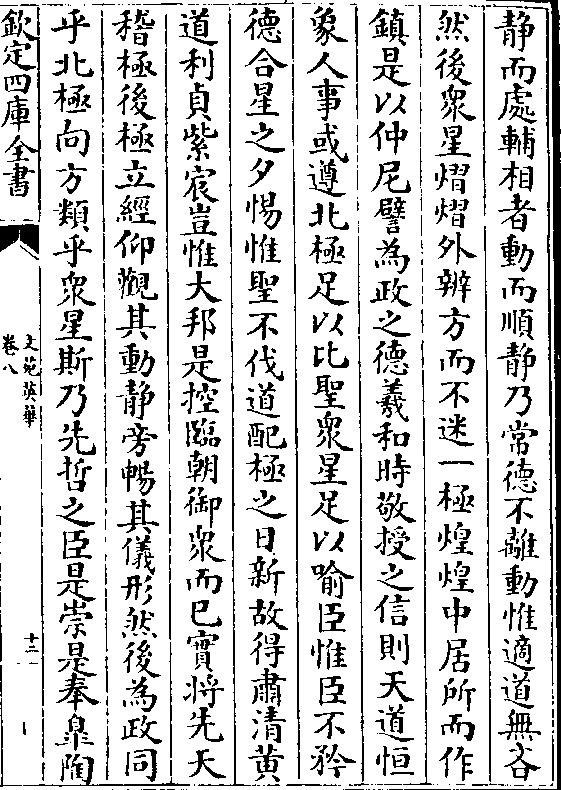 静而處輔相者動而順静乃常德不離動惟適道無咎
然後衆星熠熠外辨方而不迷一極煌煌中居所而作
鎮是以仲尼譬為政之德羲和時敬授之信則天道恒
象人事或遵北極足以比聖衆星足以喻臣惟臣不矜
德合星之夕惕惟聖不伐道配極之日新故得肅清黄
道利貞紫宸豈惟大邦是控臨朝御衆而已實將先天
稽極後極立經仰觀其動静旁暢其儀形然後為政同
乎北極向方類乎衆星斯乃先哲之臣是崇是奉臯陶
欽定四庫全書
文苑英華
卷八
十二